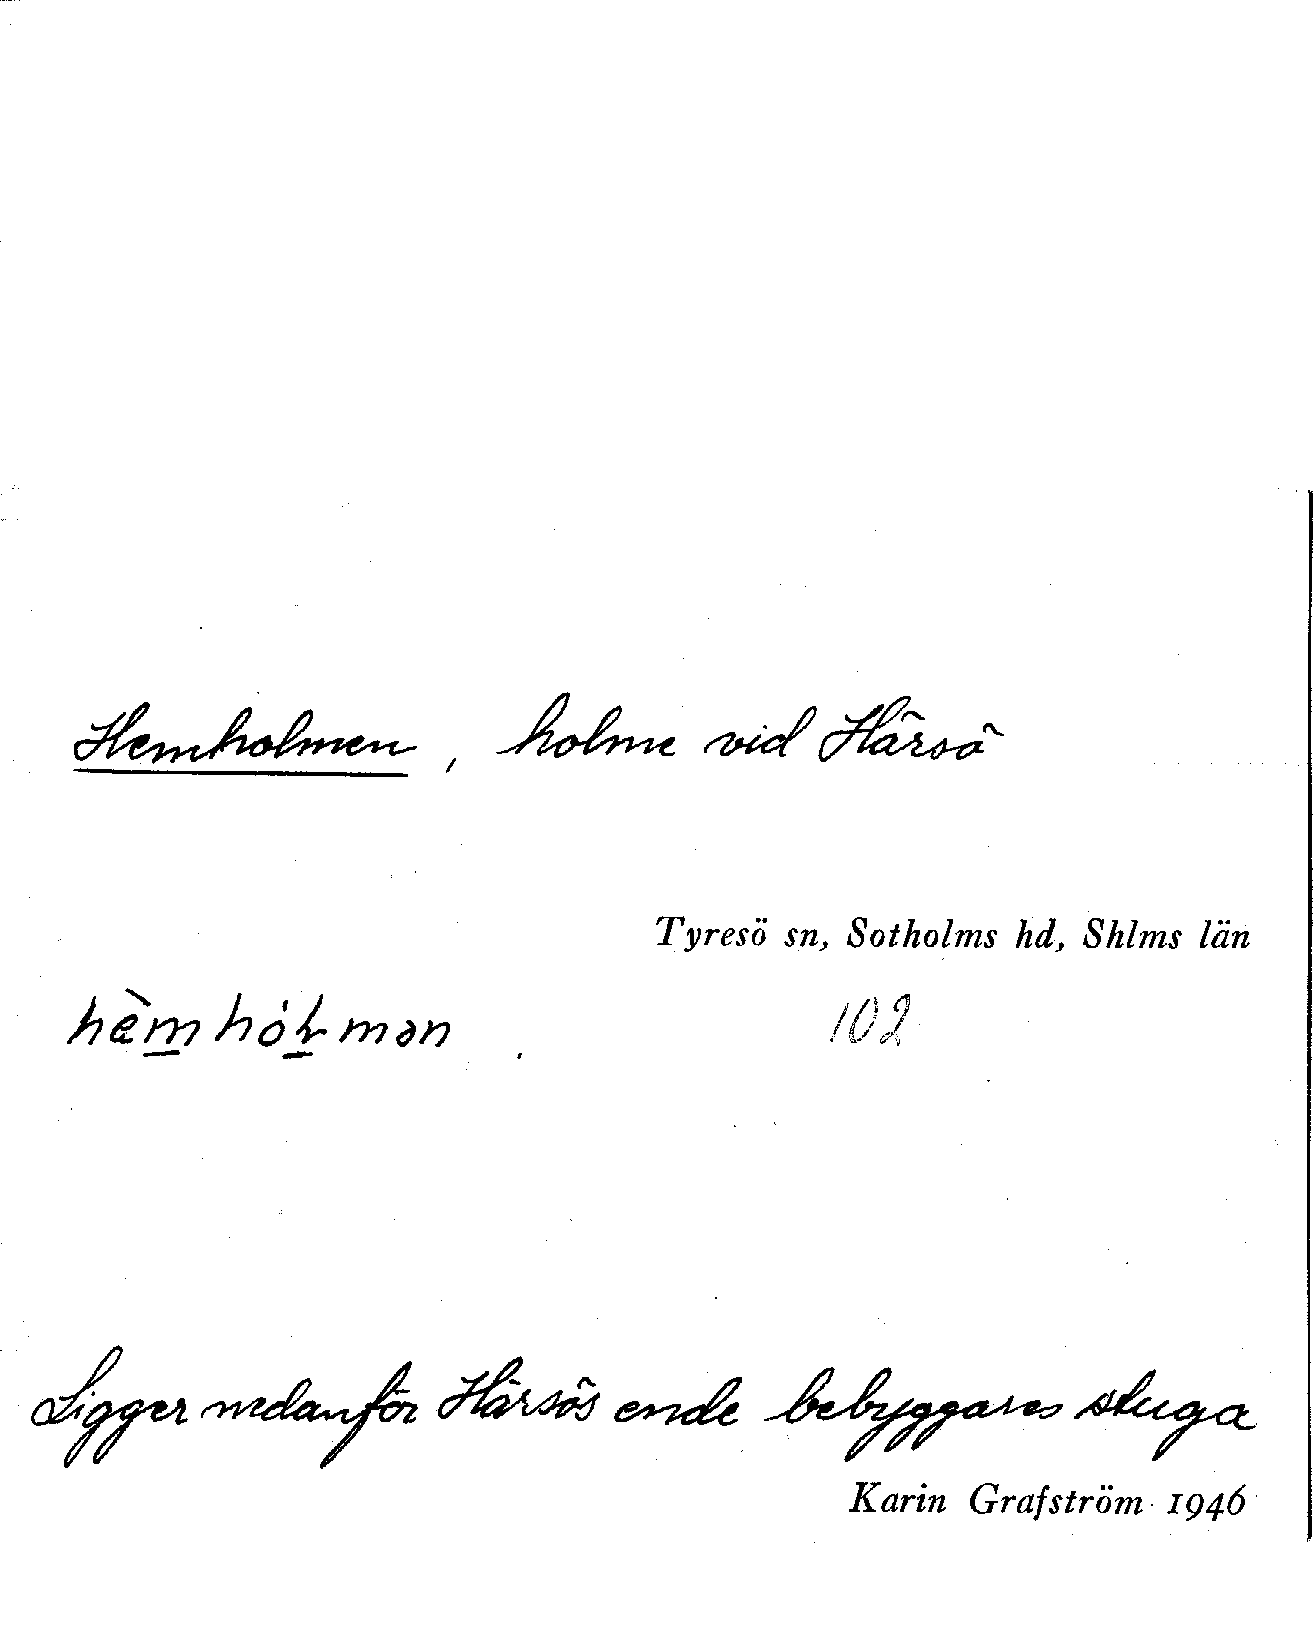 Hemholmen, holme vid Härsö
Tyresö sn, Sotholms hd, Shlms län
102
Ligger nedanför Härsös ende bebyggares stuga
Karin Grafström 1946